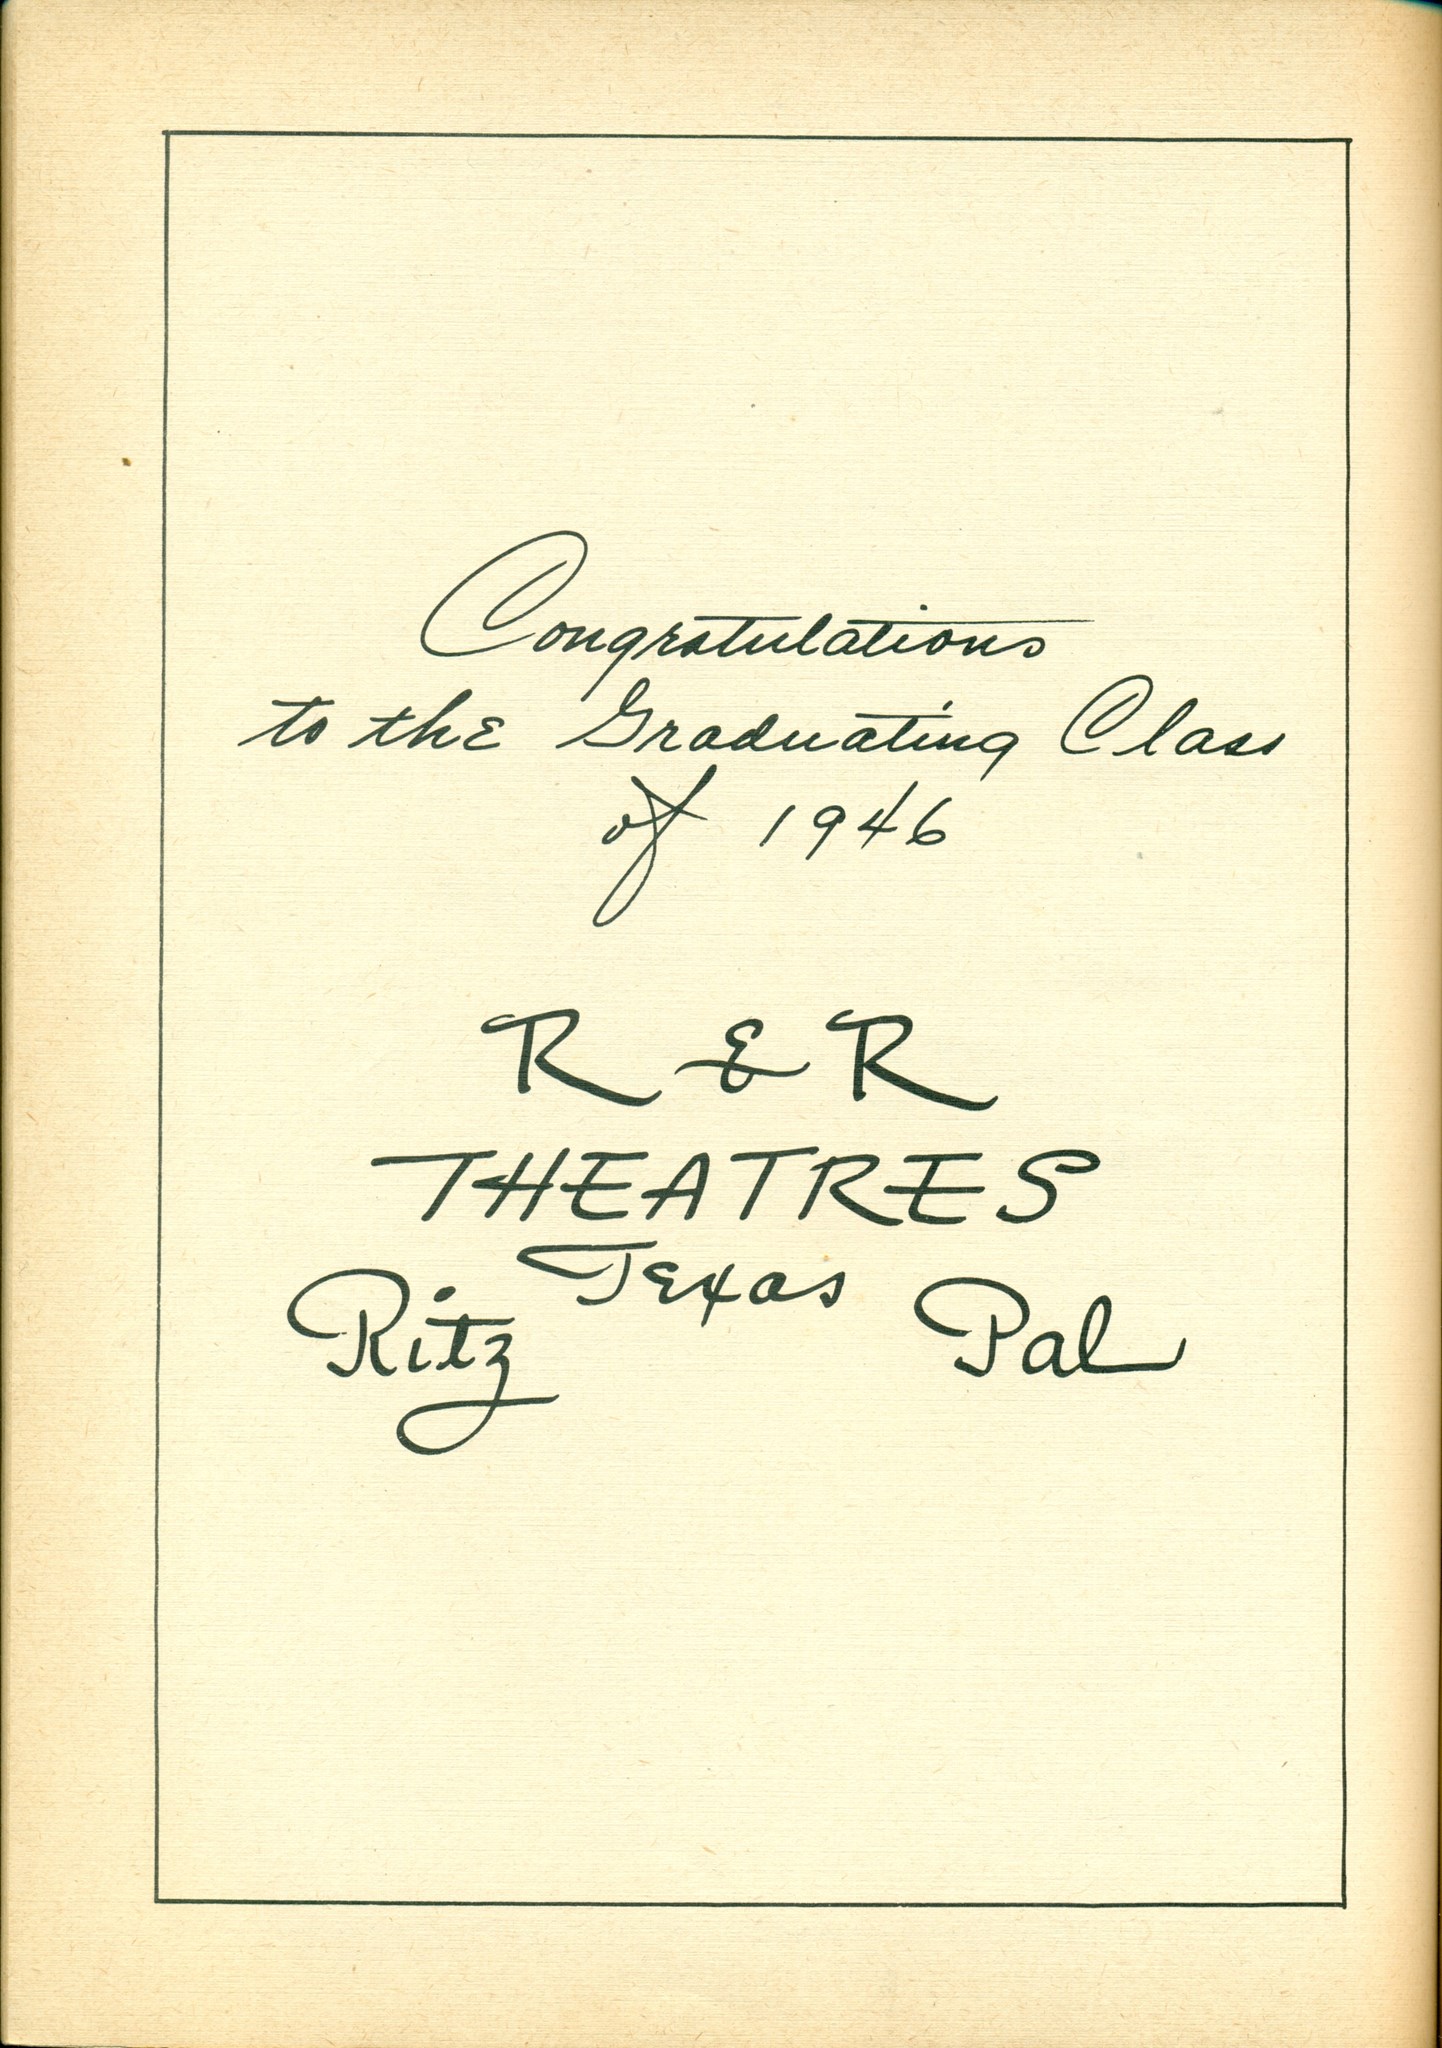 Congratulations
to the Graduating Class
of 1946
R & R
THEATRES
Texas
Ritz Pal